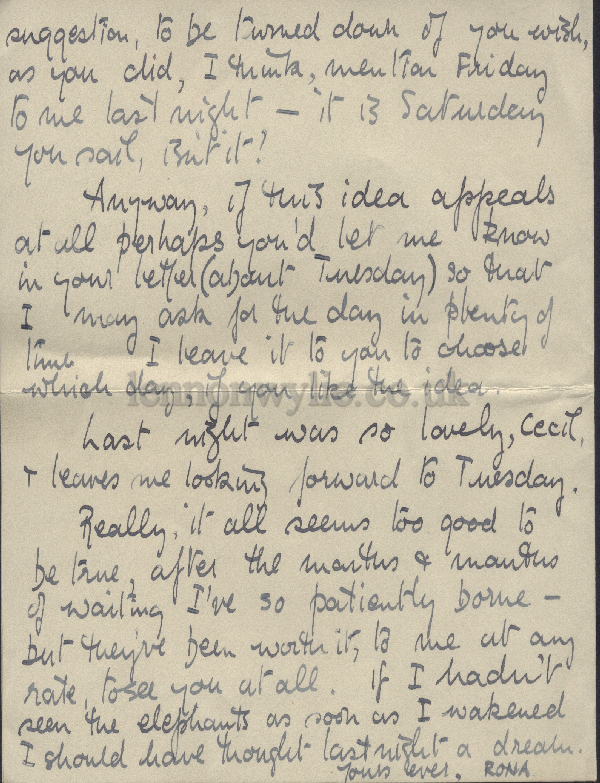 suggestion, to be turned down if you wish,
as you did, I think, mention Friday
to me last night – it is Saturday
you sail, isn't it?
Anyway, if this idea appeals
at all perhaps you'd let me know
in your letter (about Tuesday) so that
I may ask for the day in plenty of
time I leave it to you to choose
which day, if you like the idea.
lennonwylie.co.uk
Last night was so lovely, Cecil,
+ leaves me looking forward to Tuesday.
Really, it all seems too good to
be true, after the months & months
of waiting I've so patiently borne –
but they've been worth it, to me at any
rate, to see you at all. If I hadn't
seen the elephants as soon as I wakened
I should have thought last night a dream.
Yours ever, RONA